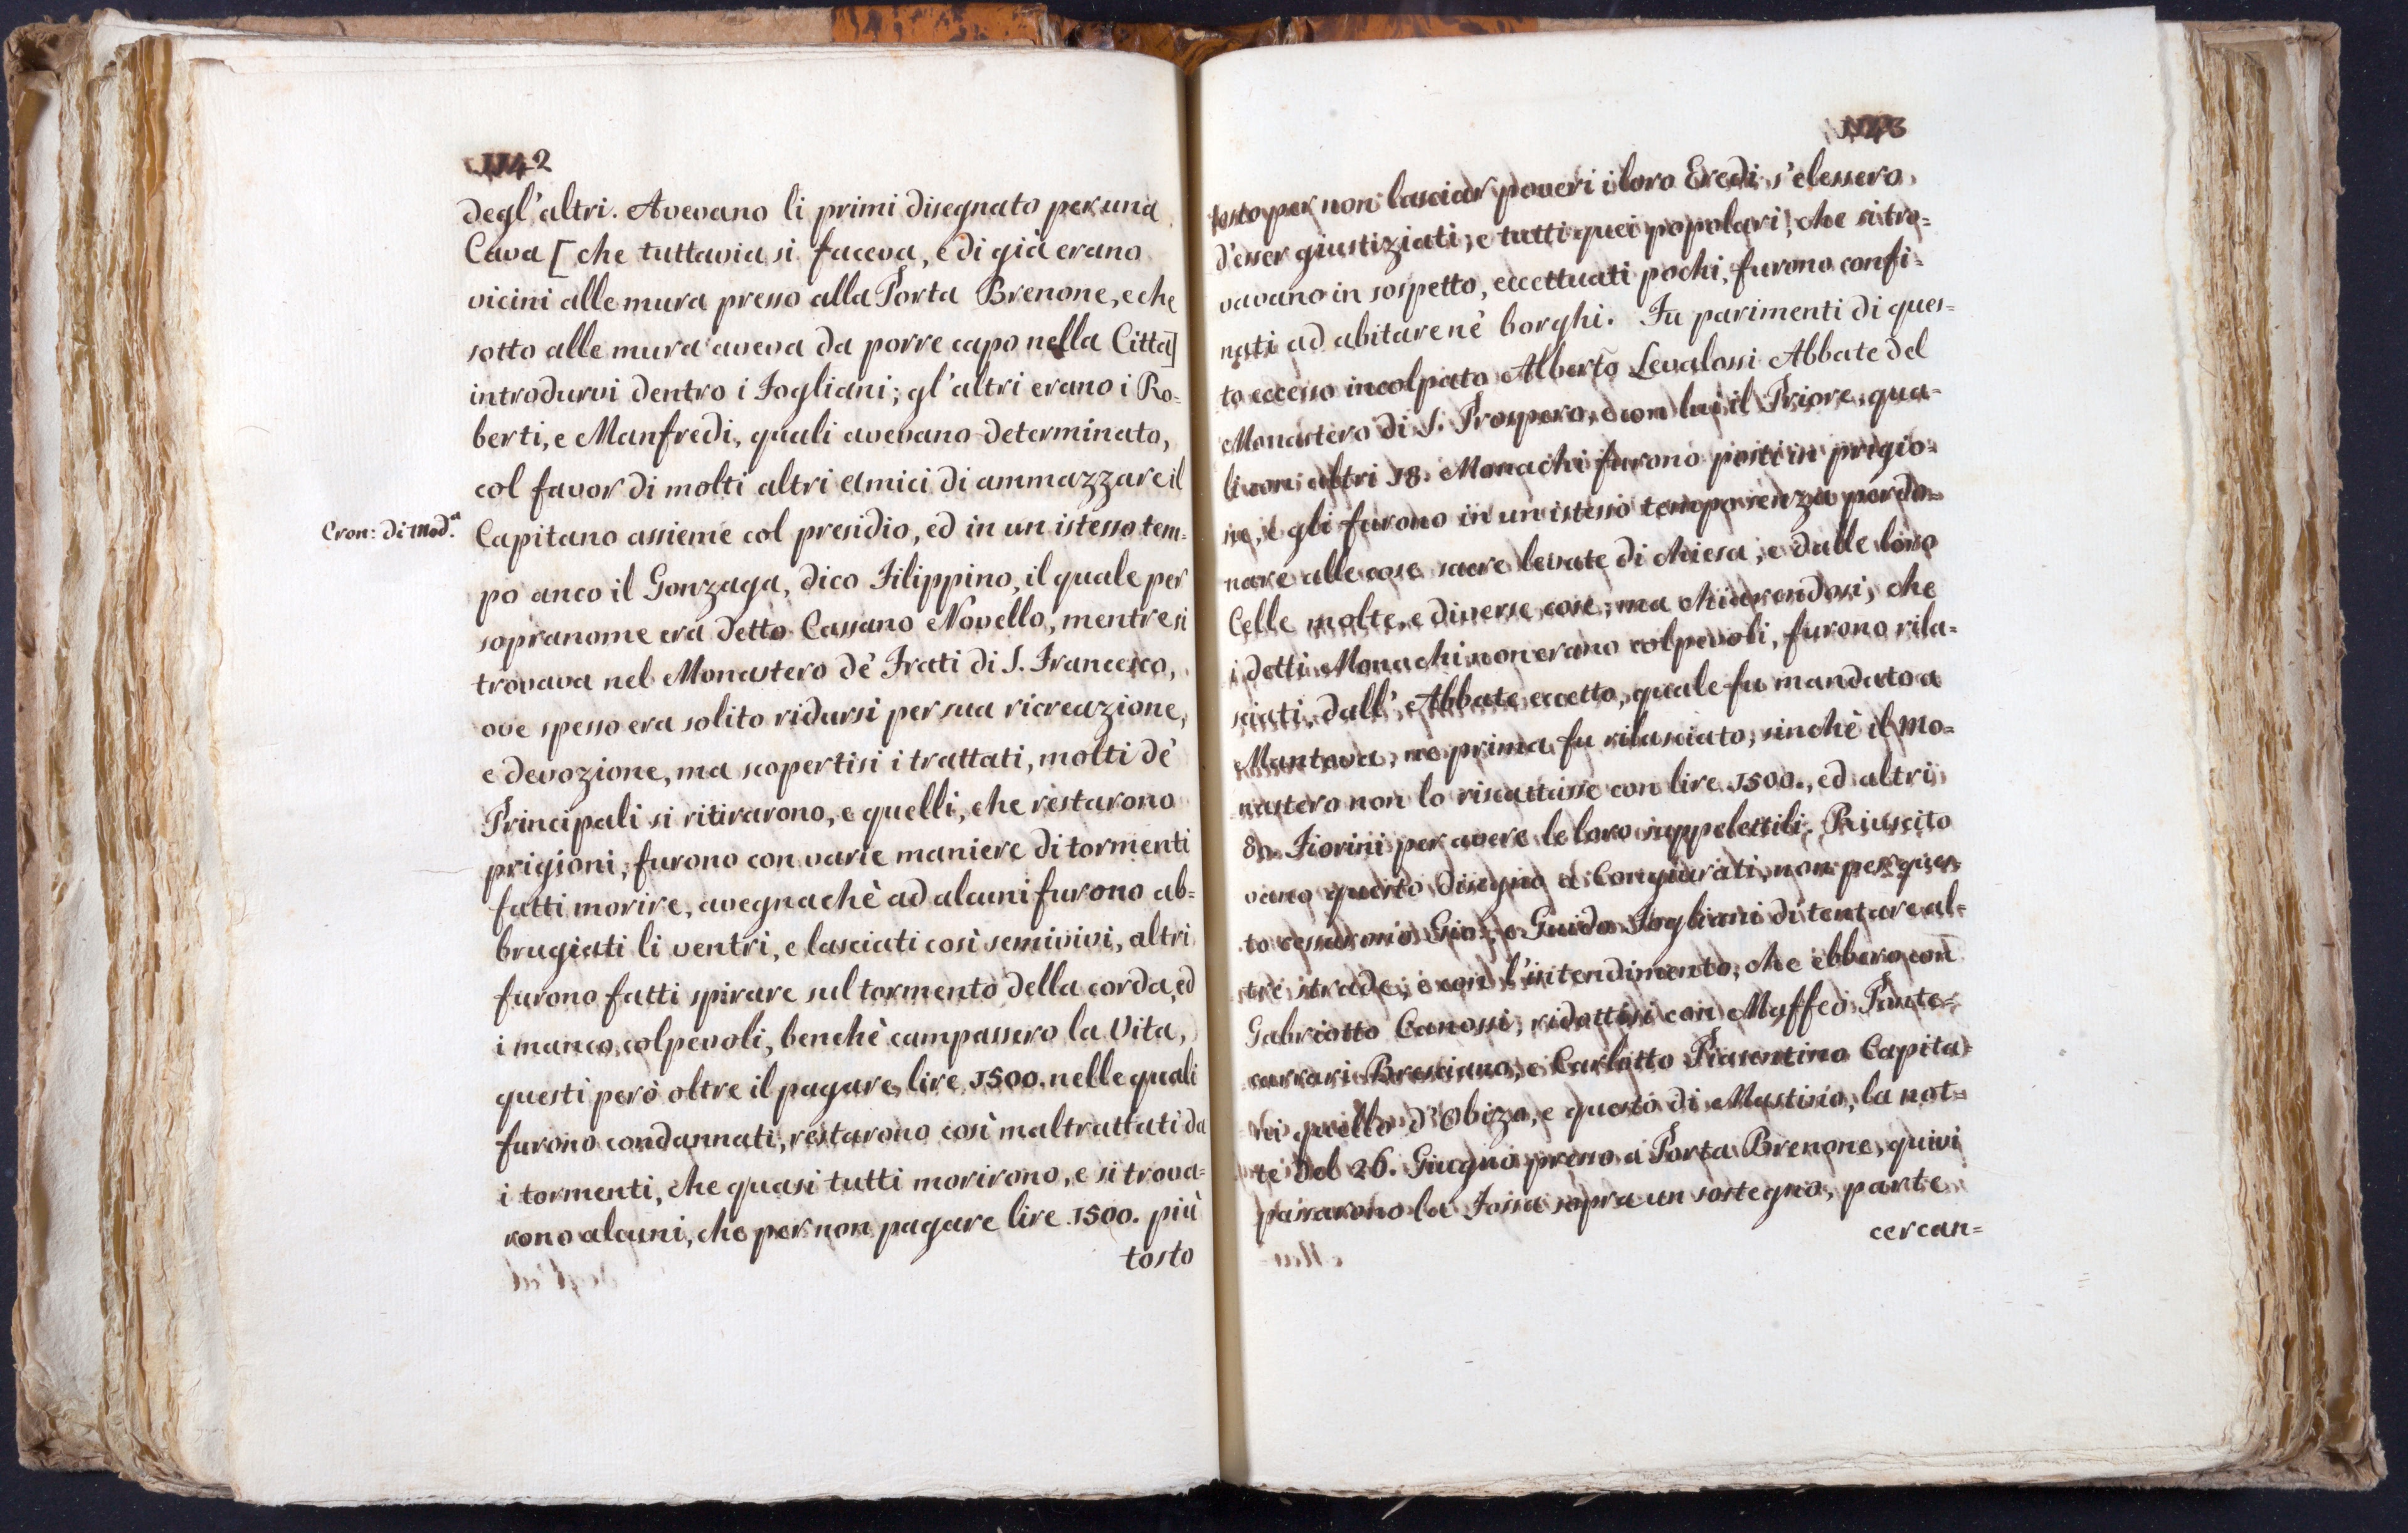 1142
degl'altri. Avevano li primi disegnato per una
Cava [che tuttavia si faceva, e di già erano
vicini alle mura presso alla Porta Brenone, e che
sotto alle mura aveva da porre capo nella Città]
introdurvi dentro i Fogliani; gl'altri erano i Ro=
berti, e Manfredi, quali avevano determinato,
col favor di molti altri Amici di ammazzare il
Cron: di Mod.a
Capitano assieme col presidio, ed in un istesso tem=
po anco il Gonzaga, dico Filippino, il quale per
sopranome era detto Cassano Novello, mentre si
trovava nel Monastero dè Frati di S. Francesco,
ove spesso era solito ridursi per sua ricreazione,
e devozione, ma scopertisi i trattati, molti dè
Principali si ritirarono, e quelli, che restarono
prigioni, furono con varie maniere di tormenti
fatti morire, avegnachè ad alcuni furono ab=
brugiati li ventri, e lasciati così semivivi, altri
furono fatti spirare sul tormento della corda, ed
i manco colpevoli, benchè campassero la Vita,
questi però oltre il pagare lire 1500. nelle quali
furono condannati, restarono così maltrattati da
i tormenti, che quasi tutti morirono, e si trova=
rono alcuni, che per non pagare lire 1500. più
tosto
1143
tosto per non lasciar poveri i loro Eredi s'elessero
d'esser giustiziati; e tutti quei popolari, che si tro=
vavano in sospetto, eccettuati pochi, furono confi=
nati ad abitare nè borghi. Fu parimenti di ques=
to eccesso incolpato Alberto Levalossi Abbate del
Monastero di S. Prospero, e con lui il Priore, qua=
li con altri 18. Monachi furono posti in prigio=
ne, e gli furono in un istesso tempo senza perdo=
nare alle cose sacre levate di chiesa, e dalle loro
Celle molte, e diverse cose; ma chiarendosi, che
i detti Monachi non erano colpevoli, furono rila=
sciati, dall'Abbate eccetto, quale fu mandato a
Mantova, ne prima fu rilasciato, sinchè il Mo=
nastero non lo riscattasse con lire 1500., ed altri
80. Fiorini per avere le loro suppelettili. Riuscito
vano questo disegno a Congiurati, non per ques=
to cessarono Gio: e Guido Fogliani di tentare al=
tre strade, e con l'intendimento, che ebbero con
Gabriotto Canossi, ridottisi con Maffeo Ponte=
carrari Bresciano, e Carlotto Piasentino Capita=
ni quello d'Obizo, e questo di Mastino, la not=
te del 26. Giugno presso a Porta Brenone, quivi
passarono la Fossa sopra un sostegno, parte
cercan=